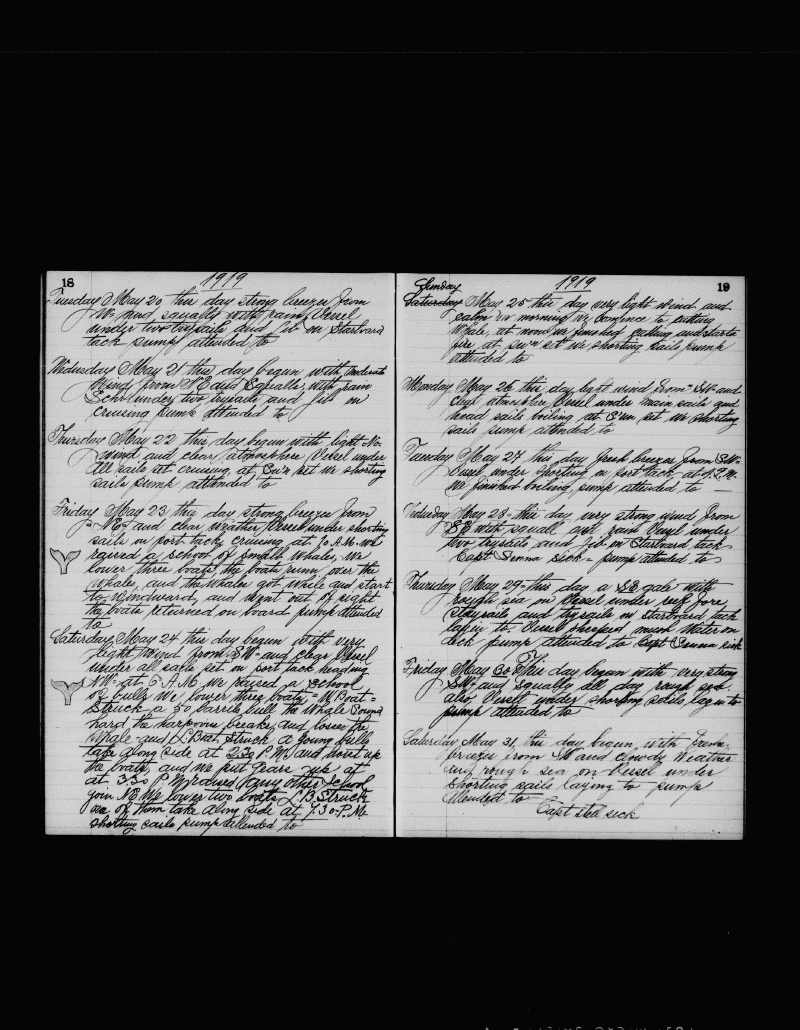 18
1919
Tuesday May 20 this day strong breezes from
W and squally with rain, Vessel
under two trysails and Jib on Starboard
tack pump attended to
Wednesday May 21 this day began with moderate
winds from NE and Squalls with rain
Sch under two trysails and Jib on
cruising pump attended to
Thursday May 22 this day began with light
wind and clear atmosphere Vessel under
all sails set cruising at Sun set we shorting
sails pump attended to
Friday May 23 this day strong breezes from
NE and clear weather Vessel under shorting
sails on port tack cruising at 10 A.M. we
raised a school of small whales, we
lower three boats the boats runn over the
whale, and the whales got while and start
to windward, and want out of sight
the boats returned on board pump attended
to
Saturday May 24 this day began with very
light wind from SW and clear Vessel
under all sails set on port tack heading
NW at A.M. we raised a School
of bulls We lower three boats W Boat
Struck a 50 barrels bull the Whale Pound
hard the harpoon breake and loose the
Whale and L Boat Struck a Young bulls
take along side at 2.30 P M and hoist up
the boats, and we put gears out of
at 330 P M raised annother School
join NE We lower two boats L B Struck
one of them take along side at 7.30 P.M.
shorting sails pump attended to
1919
19
Sunday
Saturday May 25 this day very light wind and
calm in morning we comence to cutting
Whale, at noon we finished cutting and starte
fire at sun set we shorting sails pump
attended to
Monday May 26 this day light wind from SW and
clear atmosphere Vessel under main sails and
head sails boiling at Sun set we shorting
sails pump attended to
Tuesday May 27 this day fresh breezes from SW
Vessel under shorting on port tack at P.M.
we finished boiling pump attended to
Wednesday May 28 this day very strong wind from
SE with squall and rain Vessel under
two trysails and Jib on Starboard tack
Capt Senna Sick pump attended to
Thursday May 29 this day a SE gale with
rough sea on Vessel under reef fore
staysails and trysails on starboard tack
layin to Vessel much Water on
deck pump attended to Capt Senna sick
Friday May 30 This day began with very strong
SW and squally all day rough sea
also Vessel under shorting sails, layin to
pump attended to
Saturday May 31, this day began, with fresh
breezes from SW and clowdy Weather
very rough sea on Vessel under
shorting sails laying to pump
attended to
Capt still sick